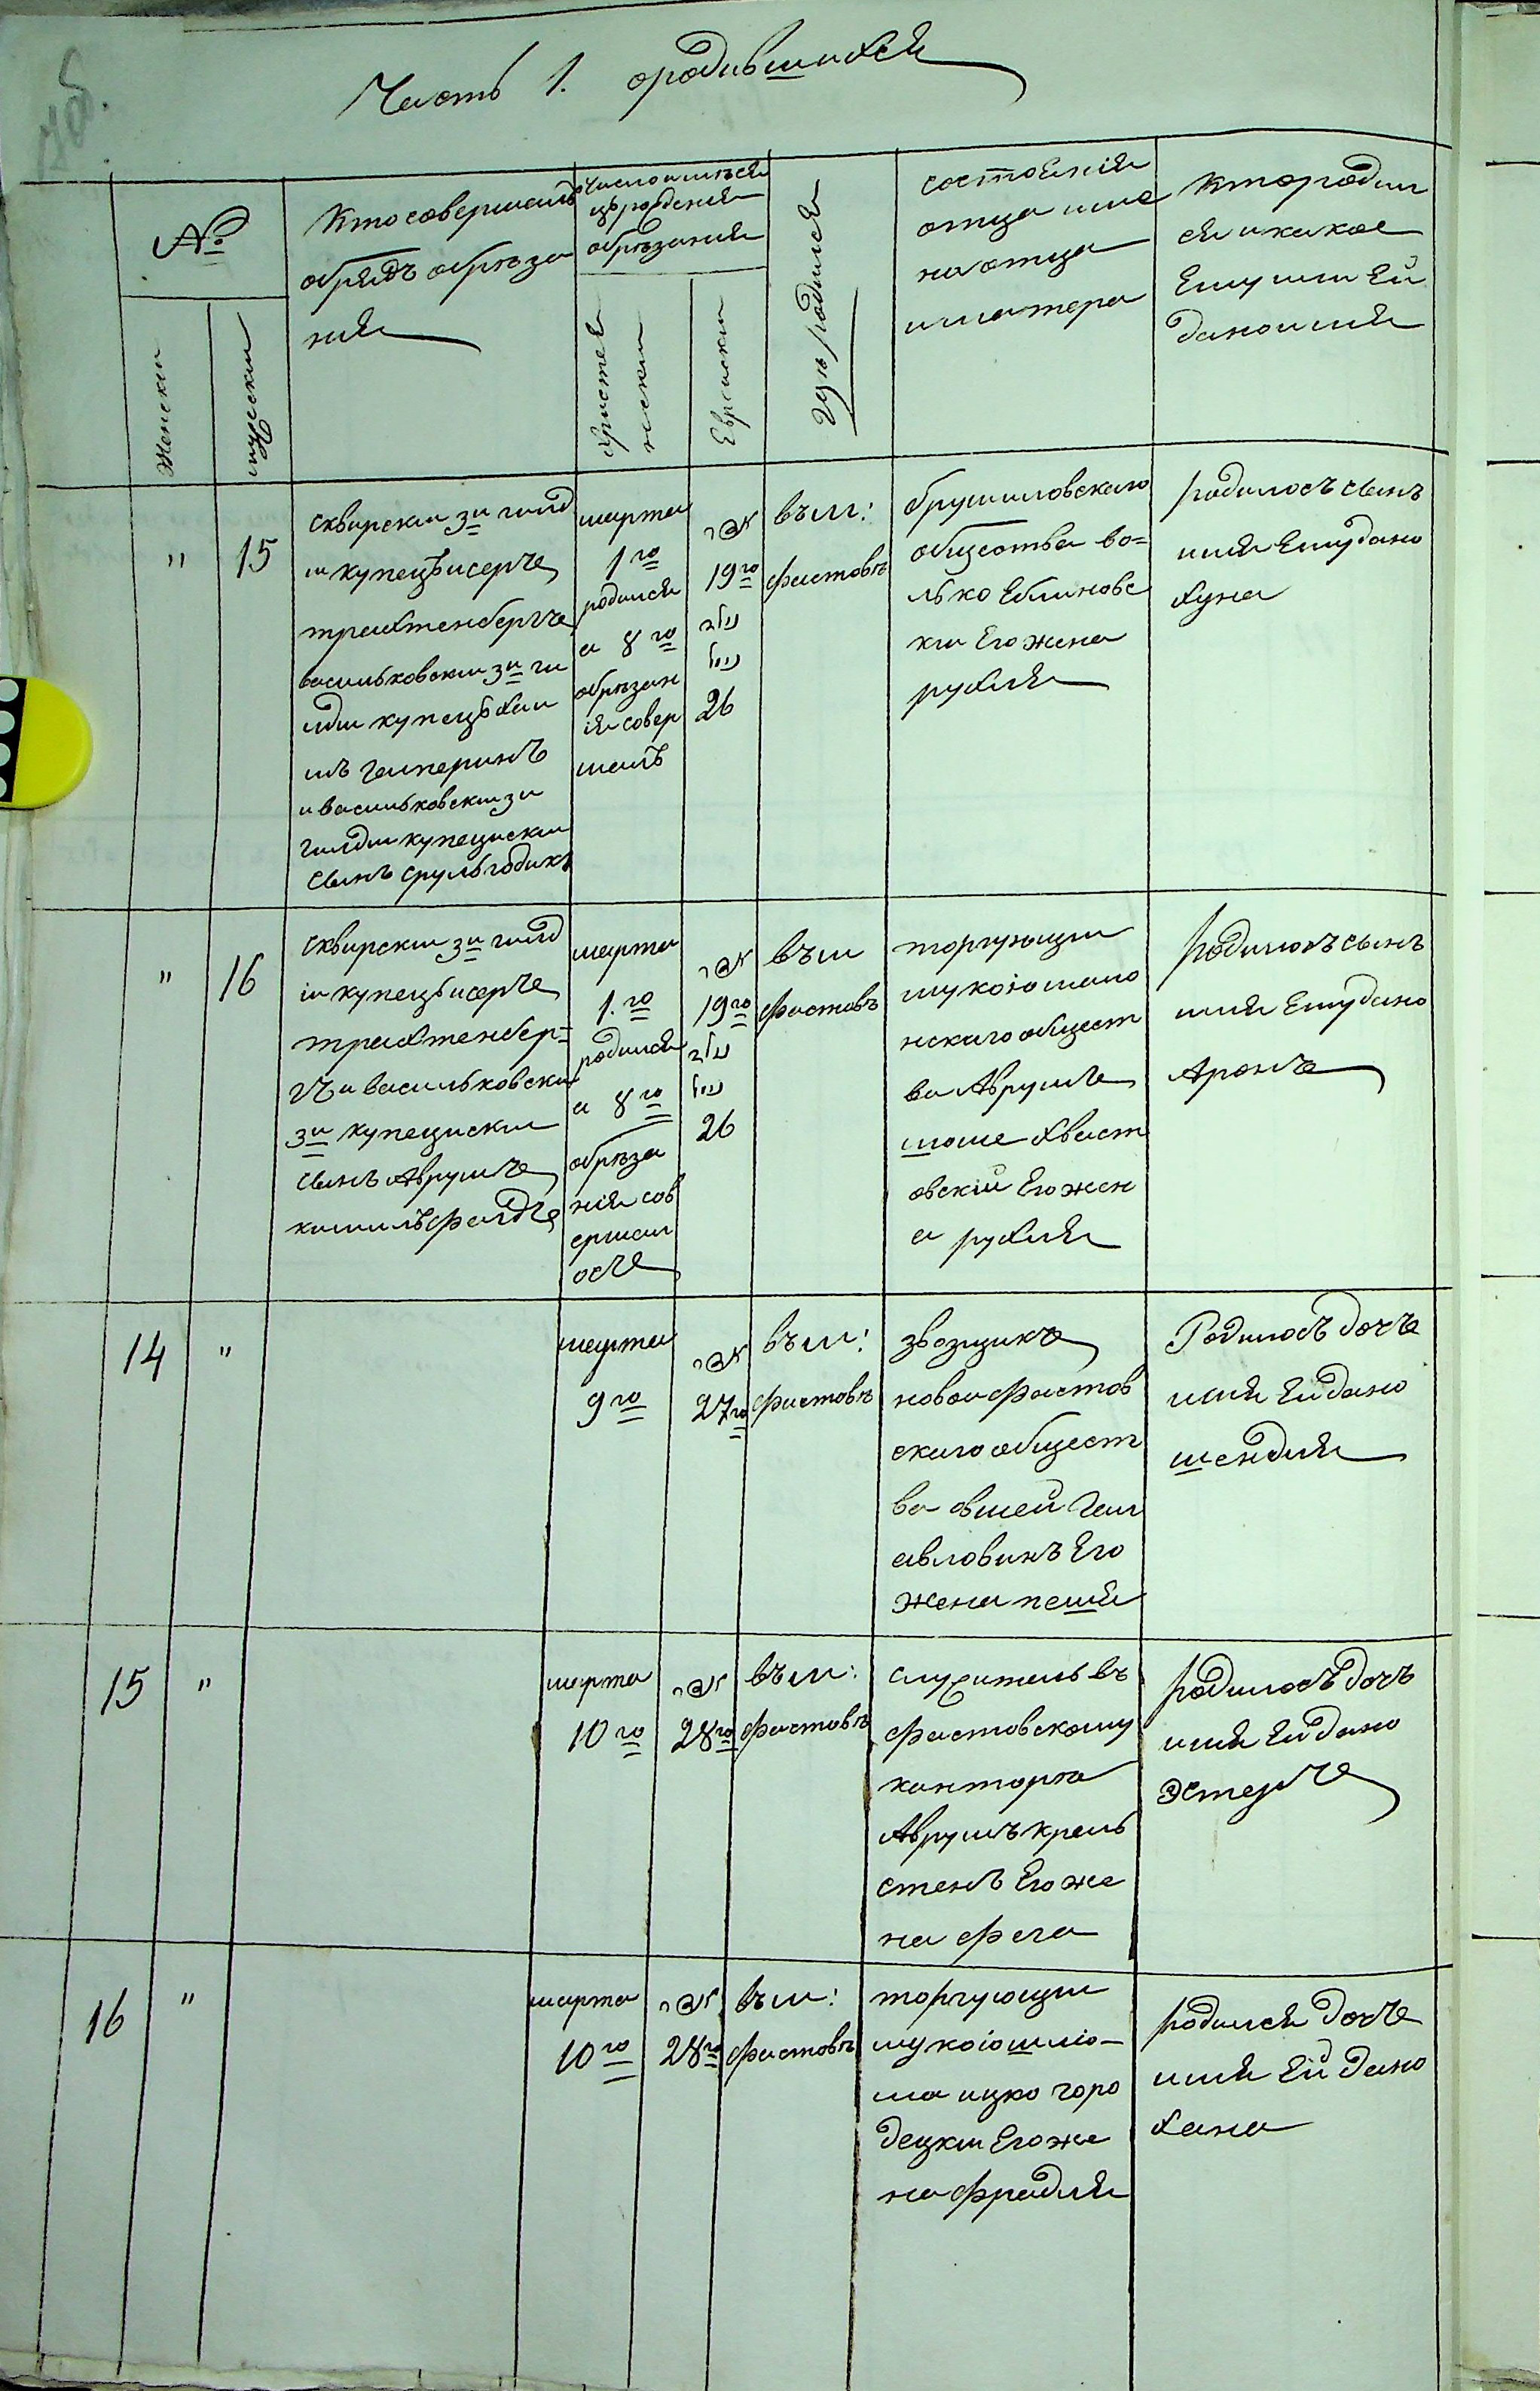 Часть 1. ородившихся
№
Женски
мужески
Кто совершалъ
обрядъ обреза
ния
Число и месяц
рождения
обрезания
Христия
нски
Еврейски
где родился
состояния
отца име
на отца
и матера
Кто родил
ся и какое
Ему или Ей
дано имя
" 15
сквирски 3и гилд
и купецъ исерче
трахтенбергче
васильковски 3и ги
лди купецъ хаи
мъ галперинъ
и васильковски 3и
гилди купецкски
сынъ срулъ годикъ
марта
1го
родился
а 8го
обрезан
ия совер
шалъ
אדר
19го
ניסן
26
въ м:
фастовъ
брусиловскаго
общества во=
лько Яблиновс
ки Его жена
рухля
родилосъ сынъ
имя Ему дано
хуна
" 16
сквирски 3и гилд
и купецъ исерче
трахтенбер=
гъ и васильковски
3и купецкски
сынъ Аврумче
камилъфалдче
марта
1.го
родился
а 8го
обреза
ния сов
ершал
осче
אדר
19го
ניסן
26
въ м
фастовъ
торгующи
мукою мало
нскаго общест
ва Аврумче
шоме Хваст
овски Его жен
а рухля
родилосъ сынъ
имя Ему дано
Аронче
14 "
марта
9го
אדר
27го
въ м:
фастовъ
звозчикче
новои фастов
скаго общест
ва овшей Гал
авловинъ Его
жена пешя
Родилосъ дочъ
имя Ей дано
шендля
15 "
марта
10го
אדר
28го
въ м:
фастовъ
служитель въ
фастовскому
канторю
Аврумъ крель
стенъ Его же
на фега
родилосъ дочъ
имя Ей дано
Эстерче
16 "
марта
10го
אדר
28го
въ м:
фастовъ
торгующи
мукою шлио-
ма ицко горо
децки Его же
на фрадля
родился дочъ
имя Ей дано
хана